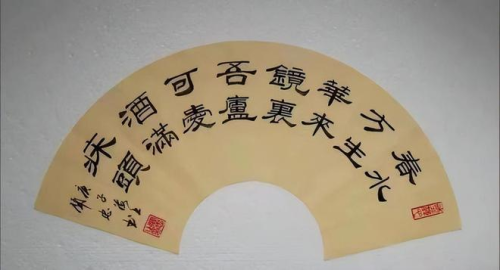 春水
方生
華來
鏡裏
吾廬
可愛
酒滿
床頭
庚子